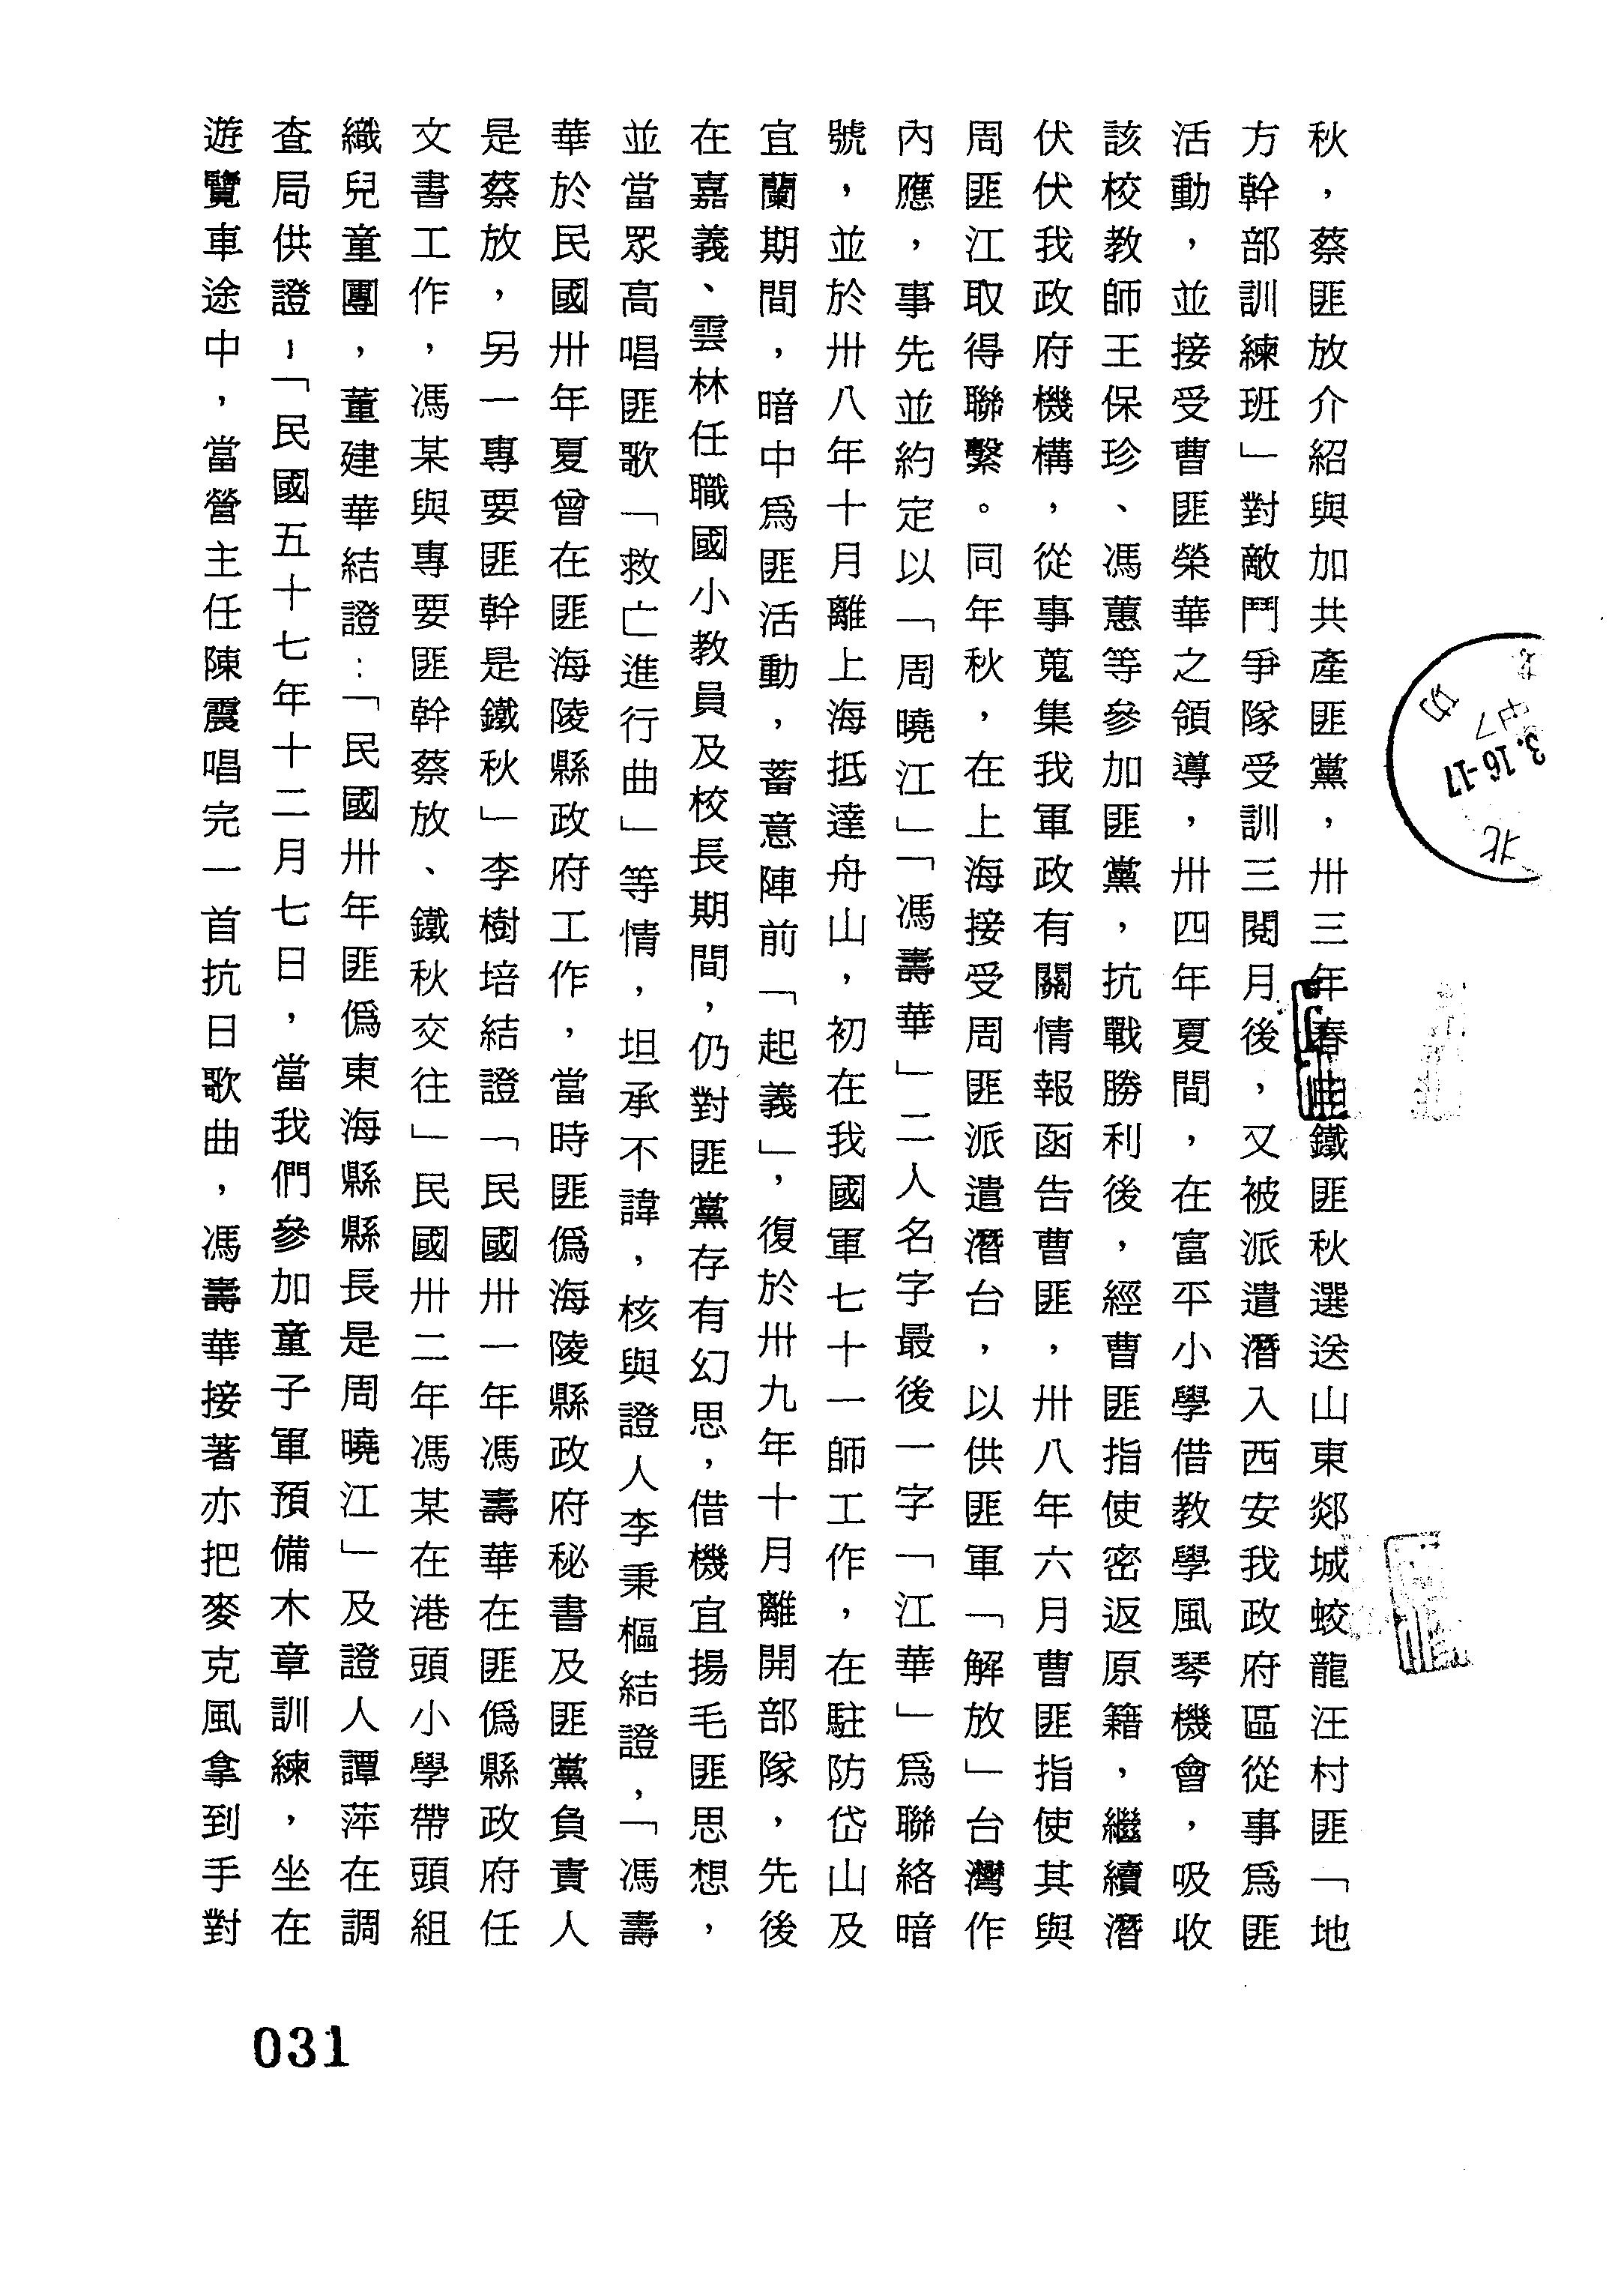 秋，蔡匪放介紹與加共產匪黨，卅三年春由鐵匪秋選送山東郯城蛟龍汪村匪「地
方幹部訓練班」對敵鬥爭隊受訓三閱月後，又被派遣潛入西安我政府區從事為匪
活動，並接受曹匪榮華之領導，卅四年夏間，在富平小學借教學風琴機會，吸收
該校教師王保珍、馮蕙等參加匪黨，抗戰勝利後，經曹匪指使密返原籍，繼續潛
伏伏我政府機構，從事蒐集我軍政有關情報函告曹匪，卅八年六月曹匪指使其與
周匪江取得聯繫。同年秋，在上海接受周匪派遣潛台，以供匪軍「解放」台灣作
內應，事先並約定以「周曉江」「馮壽華」二人名字最後一字「江華」為聯絡暗
號，並於卅八年十月離上海抵達舟山，初在我國軍七十一師工作，在駐防岱山及
宜蘭期間，暗中為匪活動，蓄意陣前「起義」，復於卅九年十月離開部隊，先後
在嘉義、雲林任職國小教員及校長期間，仍對匪黨存有幻思，借機宜揚毛匪思想，
並當眾高唱匪歌「救亡進行曲」等情，坦承不諱，核與證人李秉樞結證，「馮壽
華於民國卅年夏曾在匪海陵縣政府工作，當時匪偽海陵縣政府秘書及匪黨負責人
是蔡放，另一專要匪幹是鐵秋」李樹培結證「民國卅一年馮壽華在匪偽縣政府任
文書工作，馮某與專要匪幹蔡放、鐵秋交往」民國卅二年馮某在港頭小學帶頭組
織兒童團，董建華結證：「民國卅年匪偽東海縣縣長是周曉江」及證人譚萍在調
查局供證；「民國五十七年十二月七日，當我們參加童子軍預備木章訓練，坐在
遊覽車途中，當營主任陳震唱完一首抗日歌曲，馮壽華接著亦把麥克風拿到手對
031
3.16-17
北